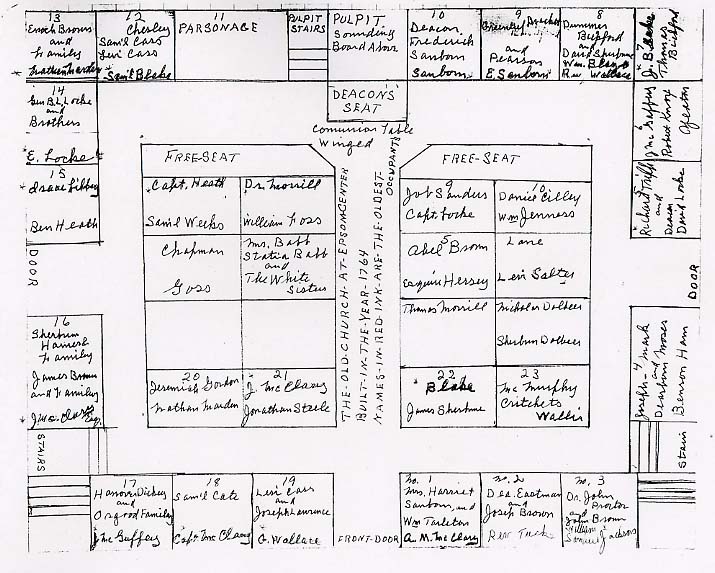 13
Enoch Brown
and
Family
12
Chesley
Sam'l Cass
Levi Cass
* Sam'l Blake
11
PARSONAGE
PULPIT
STAIRS
PULPIT
Sounding
Board Above
10
Deacon
Frederich
Sanborn
Sanborn
9
and
Pearson
E. Sanborn
8
Dummer
Bickford
and
David Sherburne
Wm. Blaze
Rev Wallace
7
J. Blake
Thomas
Bickford
14
Gen B. L. Locke
and
Brothers
*E. Locke
DEACON'S
SEAT
Communion Table
Winged
6
J Mc Gaffey
Robert Knox
15
Isaac Libbey
Ben Heath
5
Richard Tripp
and
Deacon
David Locke
FREE-SEAT
Capt. Heath
Sam'l Weeks
Dr. Morrill
William Foss
Chapman
Goss
Mrs. Babb
Statira Babb
and
The White
Sisters
20
Jeremiah Gordon
Nathan Marden
21
J. Mc Clary
Jonathan Steele
THE-OLD-CHURCH-AT-EPSOM-CENTER
BUILT-IN-THE-YEAR-1764
NAMES-IN-RED-INK-ARE-THE-OLDEST-
OCCUPANTS
FREE-SEAT
9
Job Sanders
Capt. Locke
10
Daniel Cilley
Wm Jenness
5
Abel Brown
Esquire Hersey
Lane
Levi Salter
Thomas Morrill
Nicholas Dolbeer
Sherburn Dolbeer
22
Blake
James Sherburne
23
Mc Murphy
Critchets
Wallis
DOOR
DOOR
16
Sherburn
Family
James Brown
and Family
4
Joseph - Mark
and
Dearborn Moses
Benson Ham
STAIRS
Stair
17
Hanover Dickey
and
Osgood Family
J Mc Gaffey
18
Sam'l Cate
Capt. Mc Clary
19
Levi Cass
and
Joseph Lawrence
G. Wallace
FRONT-DOOR
No. 1
Mrs. Harriet
Sanborn, and
Wm Tarleton
A. M. Mc Clary
No. 2
Dea. Eastman
and
Joseph Brown
Rev Tucke
No. 3
Dr. John
Proctor
and
John Brown
William
Samuel Jackson